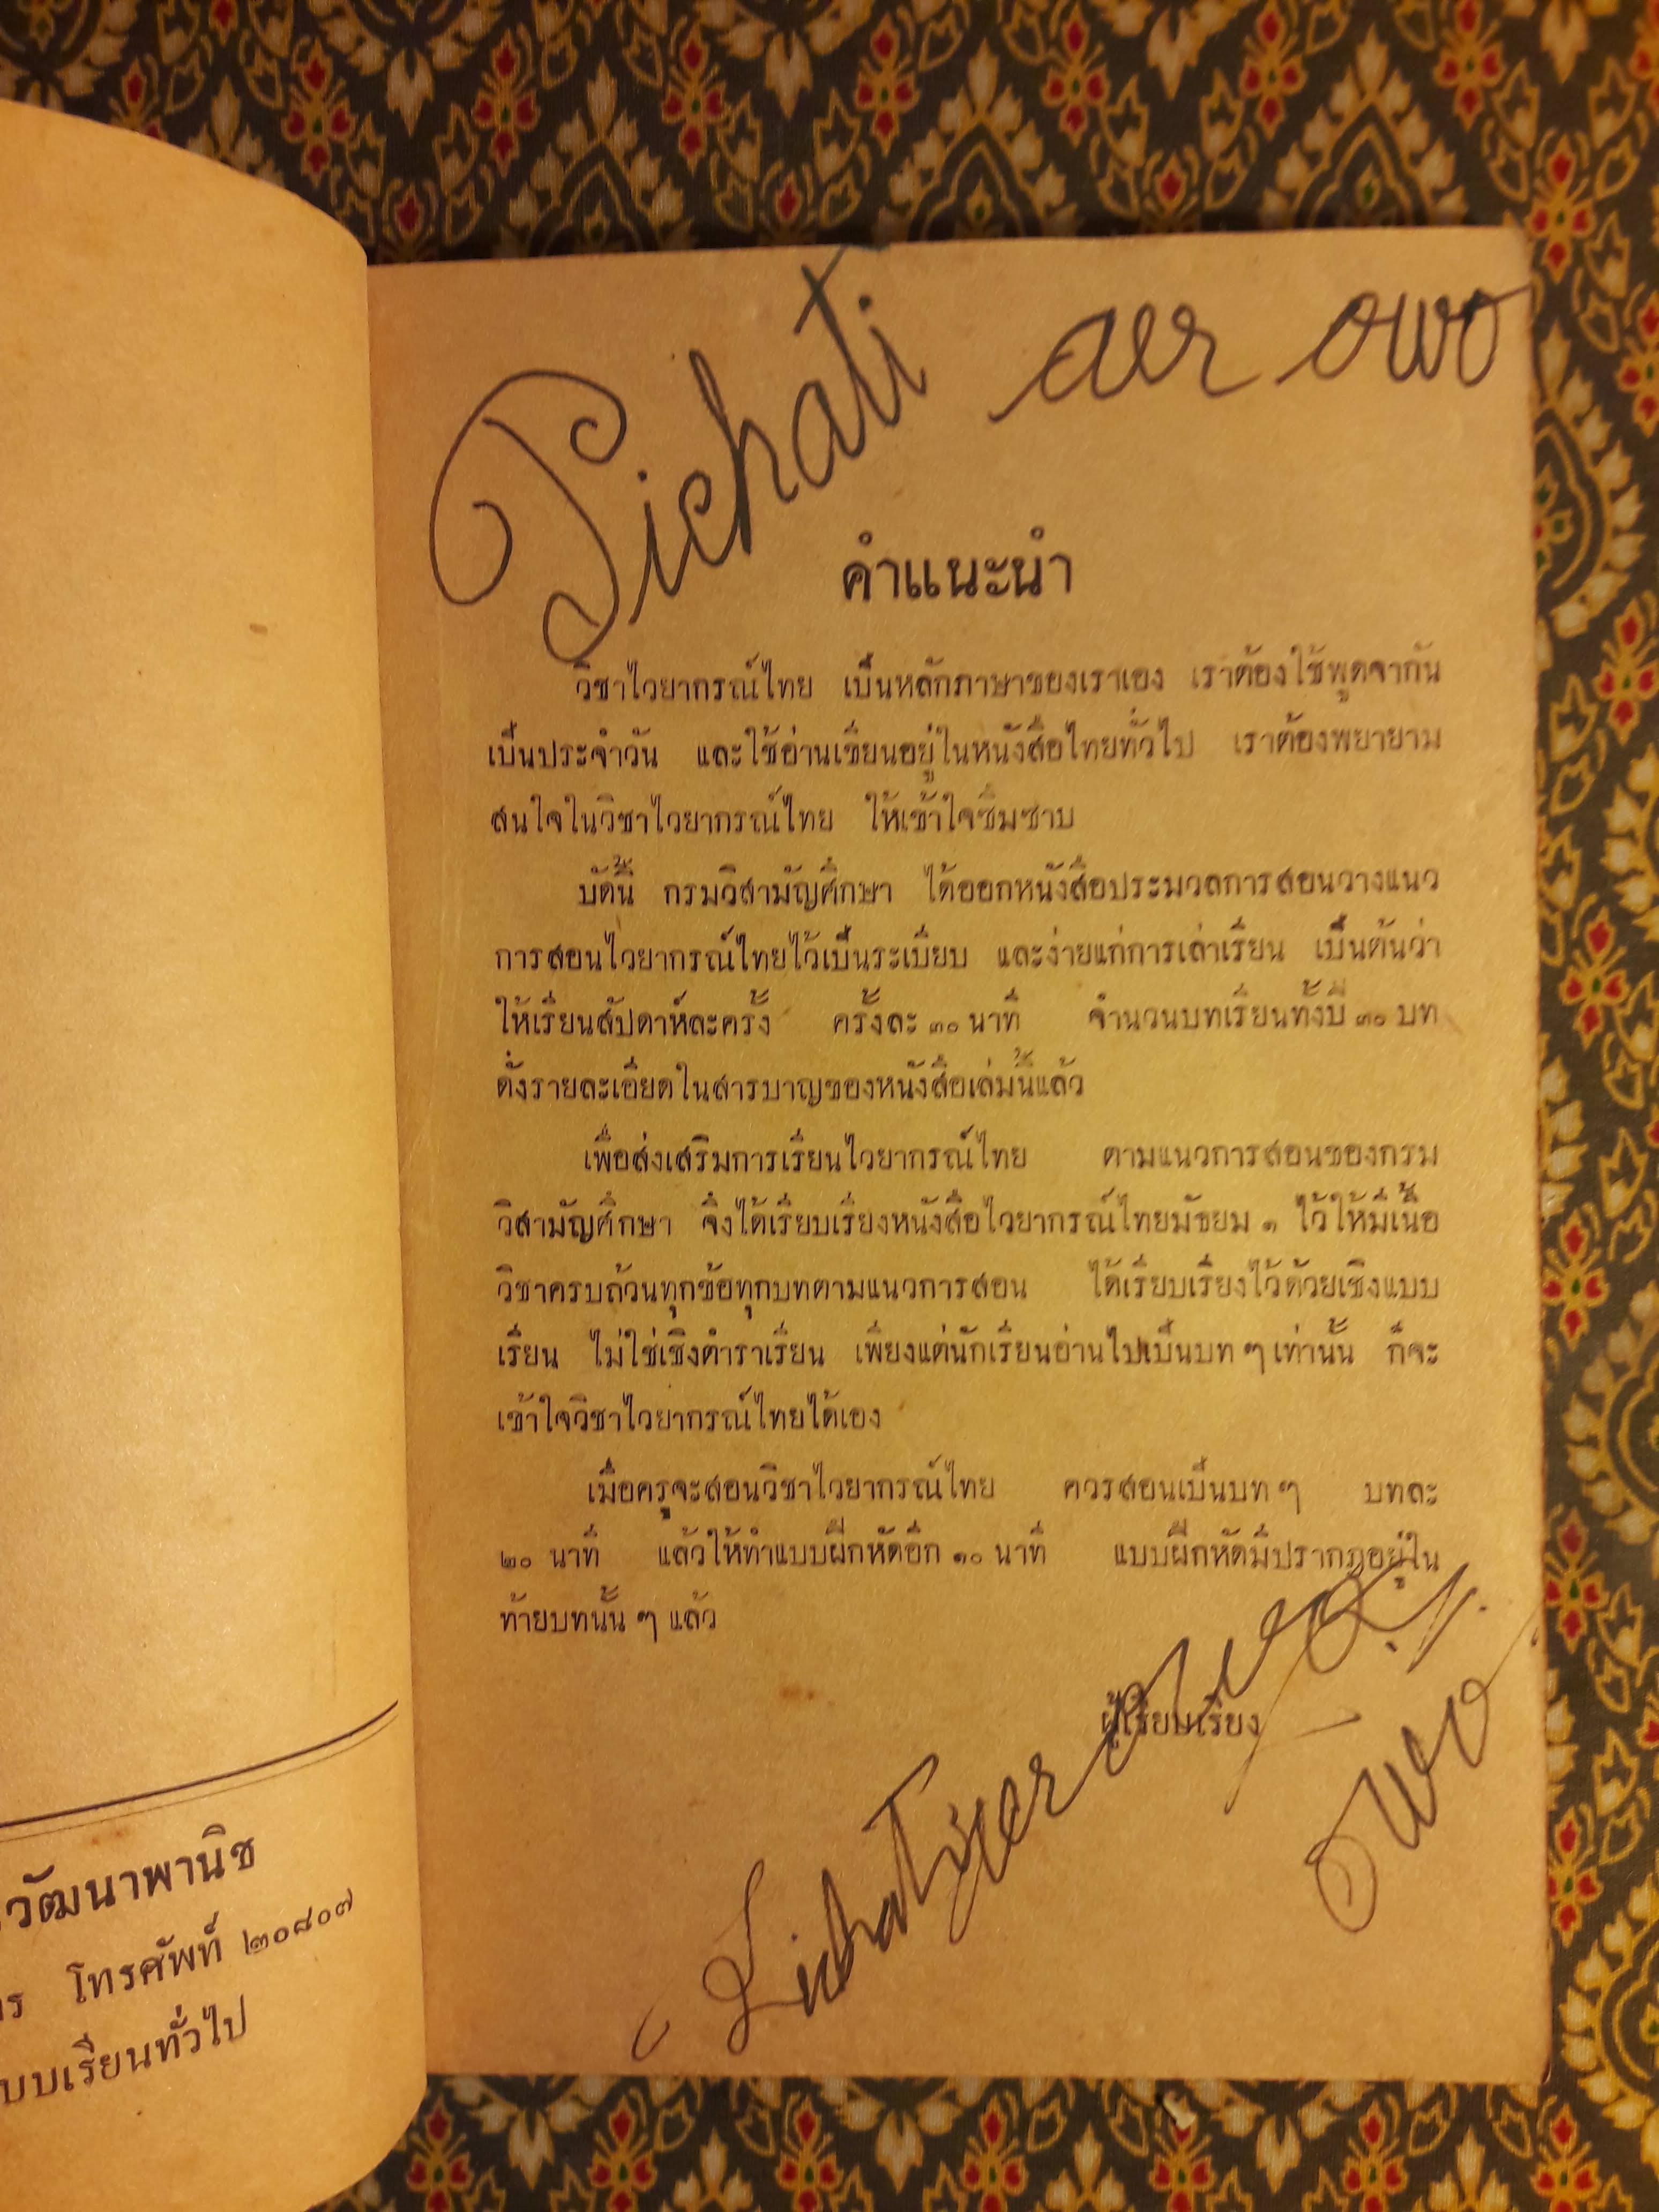 วัฒนาพานิช
โทรศัพท์ ๒๐๘๐๗
บบเรียนทั่วไป
Pichati aer owo
คำแนะนำ
วิชาไวยากรณ์ไทย เป็นหลักภาษาของเราเอง เราต้องใช้พูดจากัน
เป็นประจำวัน และใช้อ่านเขียนอยู่ในหนังสือไทยทั่วไป เราต้องพยายาม
สนใจในวิชาไวยากรณ์ไทย ให้เข้าใจซึมซาบ
บัดนี้ กรมวิสามัญศึกษา ได้ออกหนังสือประมวลการสอนวางแนว
การสอนไวยากรณ์ไทยไว้เป็นระเบียบ และง่ายแก่การเล่าเรียน เป็นต้นว่า
ให้เรียนสัปดาห์ละครั้ง ครั้งละ ๓๐ นาที จำนวนบทเรียนทั้งปี ๓๐ บท
ดั่งรายละเอียดในสารบาญของหนังสือเล่มนี้แล้ว
เพื่อส่งเสริมการเรียนไวยากรณ์ไทย ตามแนวการสอนของกรม
วิสามัญศึกษา จึงได้เรียบเรียงหนังสือไวยากรณ์ไทยมัธยม ๑ ไว้ให้มีเนื้อ
วิชาครบถ้วนทุกข้อทุกบทตามแนวการสอน ได้เรียบเรียงไว้ด้วยเชิงแบบ
เรียน ไม่ใช่เชิงตำราเรียน เพียงแต่นักเรียนอ่านไปเป็นบท ๆ เท่านั้น ก็จะ
เข้าใจวิชาไวยากรณ์ไทยได้เอง
เมื่อครูจะสอนวิชาไวยากรณ์ไทย ควรสอนเป็นบท ๆ บทละ
๒๐ นาที แล้วให้ทำแบบฝึกหัดอีก ๑๐ นาที แบบฝึกหัดมีปรากฏอยู่ใน
ท้ายบทนั้น ๆ แล้ว
ผู้เรียบเรียง
owo